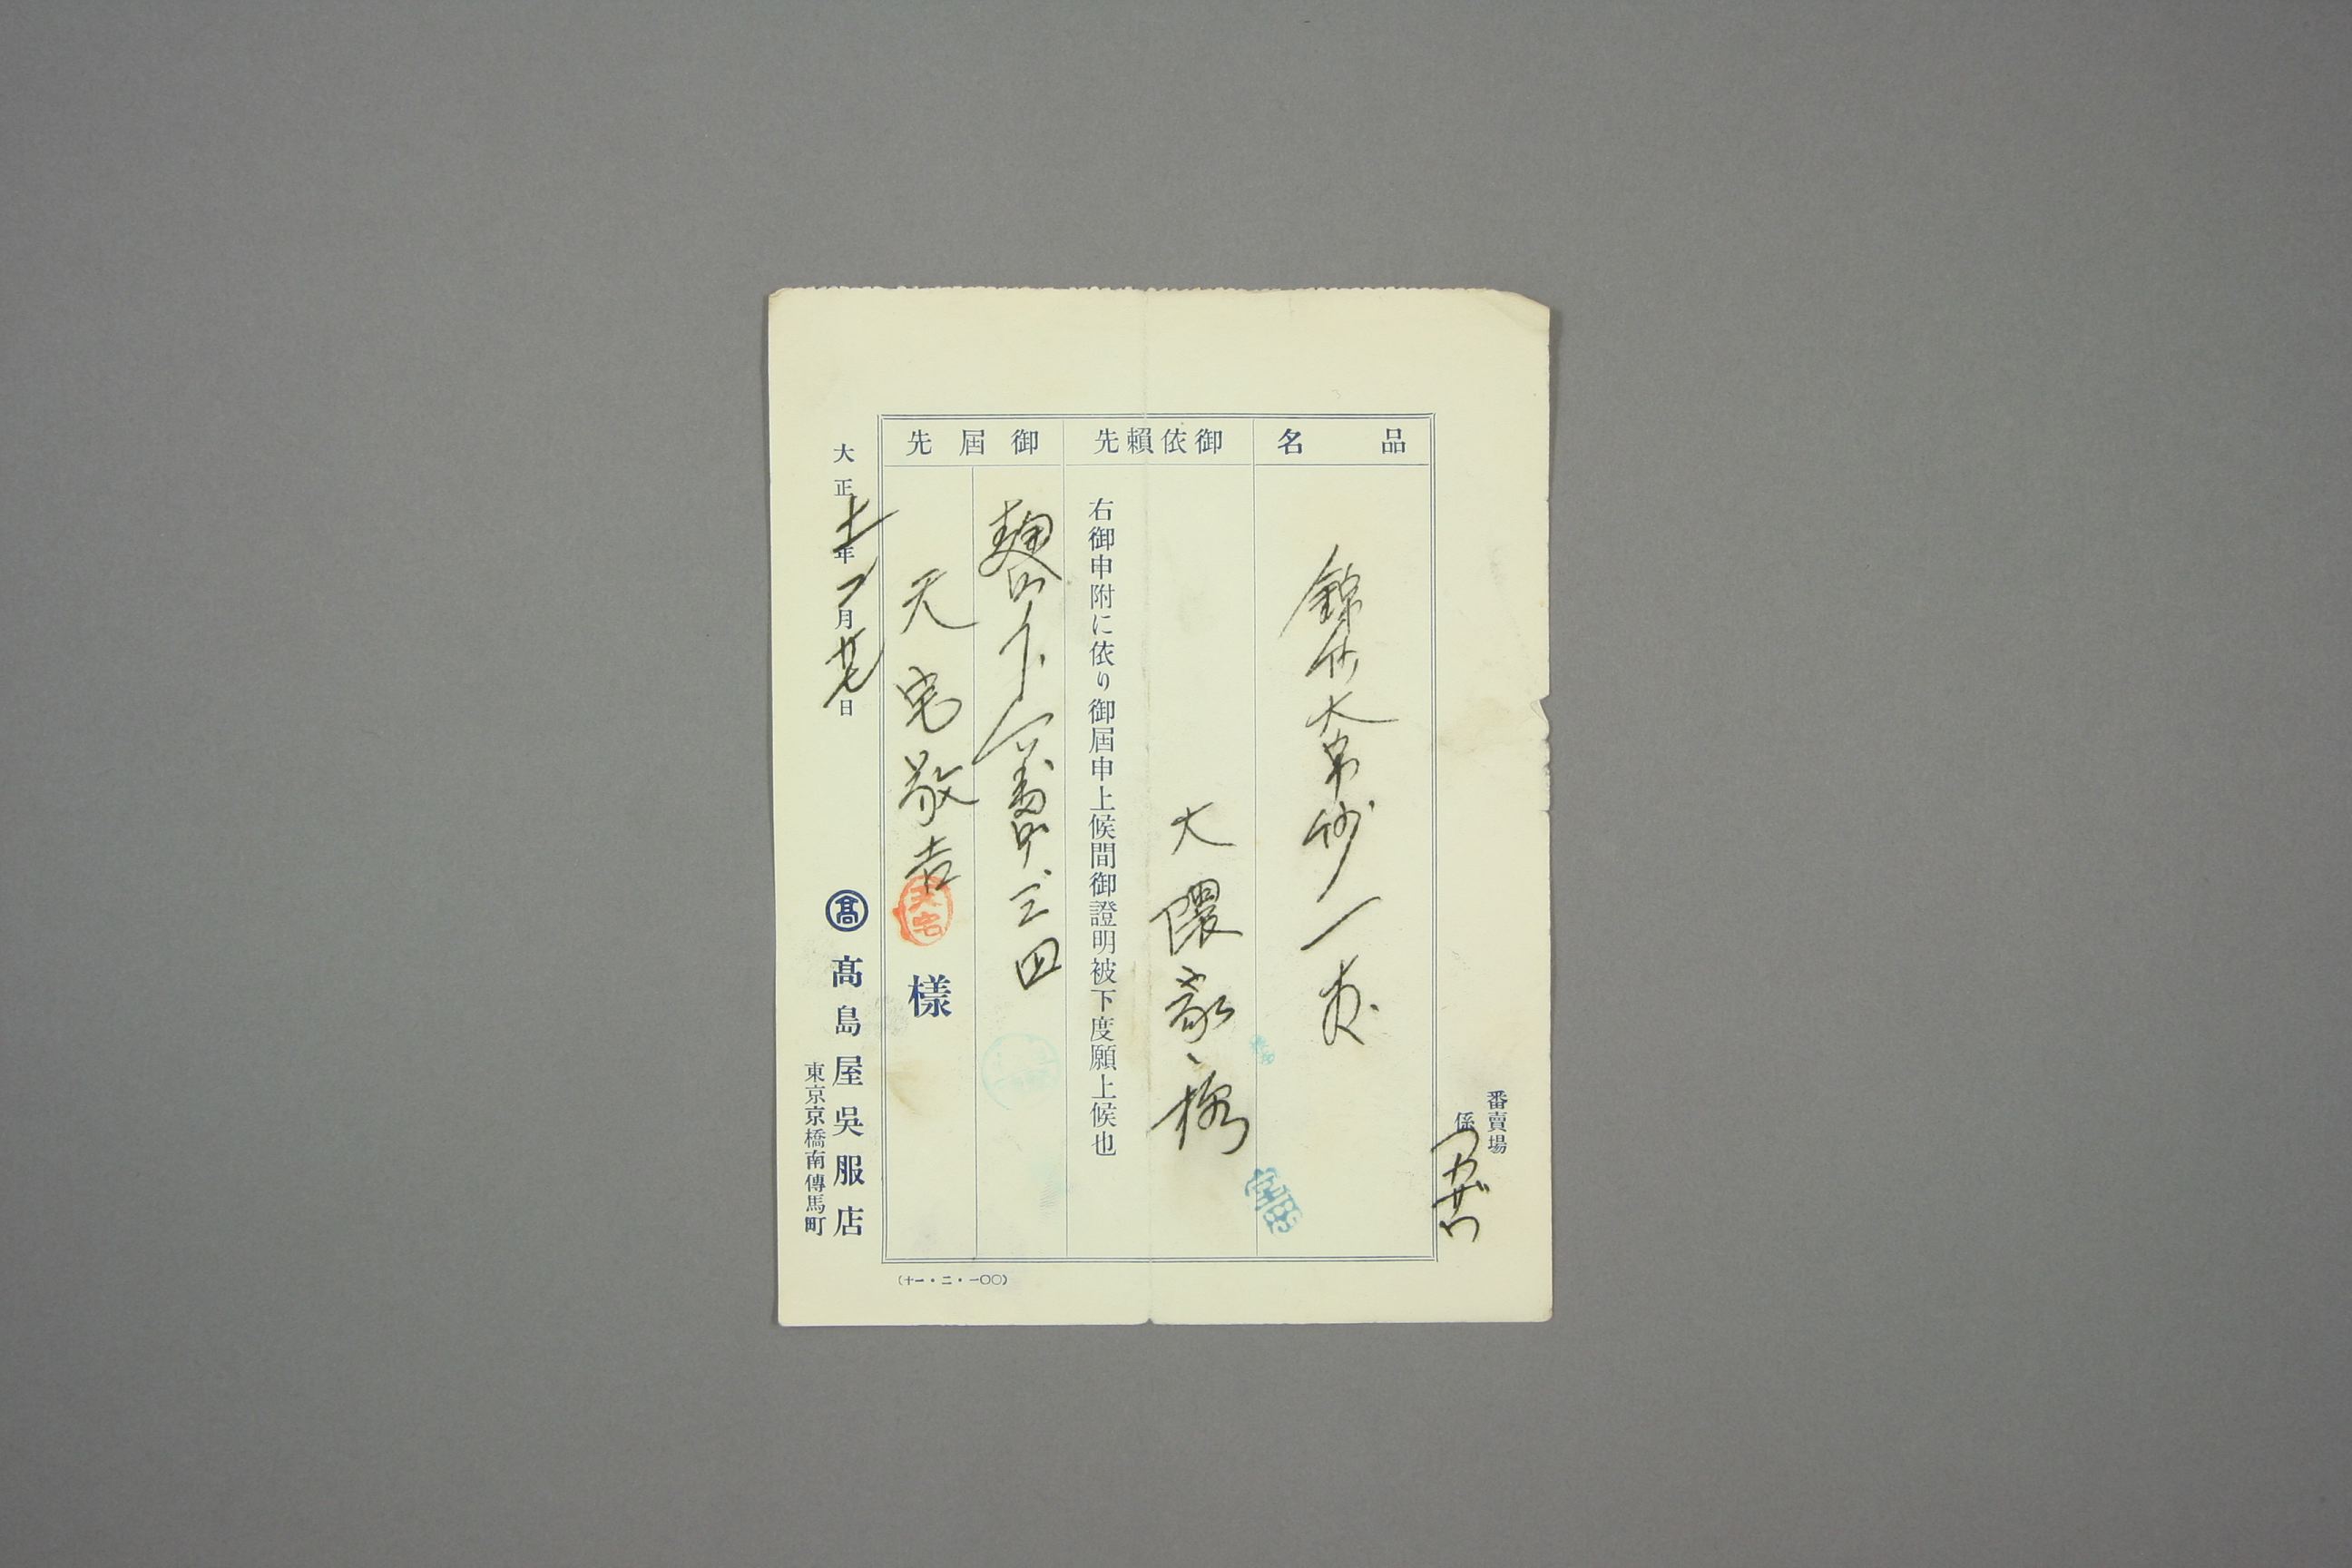 番賣場
係
品名
錦紗大帛紗一表
御依賴先
大隈家様
右御申附に依り御屆申上候間御證明被下度願上候也
御屆先
麹町下六番町三四
天宅敬吉
様
天宅
大正十一年二月廿七日
髙
髙島屋吳服店
東京京橋南傳馬町
(十一・二・一〇〇)